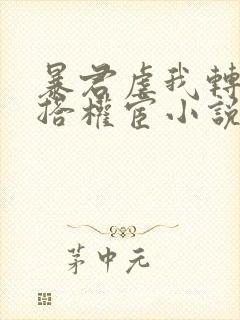 暴君虐我轉
搭權宦小說
茅中元